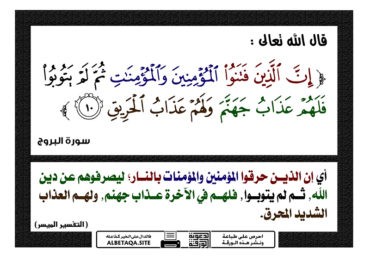 قال الله تعالى :
﴿ إِنَّ ٱلَّذِينَ فَتَنُوا۟ ٱلْمُؤْمِنِينَ وَٱلْمُؤْمِنَـٰتِ ثُمَّ لَمْ يَتُوبُوا۟
فَلَهُمْ عَذَابُ جَهَنَّمَ وَلَهُمْ عَذَابُ ٱلْحَرِيقِ ١٠ ﴾
سورة البروج
أي إن الذين حرقوا المؤمنين والمؤمنات بالنار؛ ليصرفوهم عن دين
الله, ثم لم يتوبوا, فلهم في الآخرة عذاب جهنم, ولهم العذاب
الشديد المحرق.
(التفسير الميسر)
احرص على طباعة
ونشر هذه الورقة
فالدال على الخير كفاعله
ALBETAQA.SITE